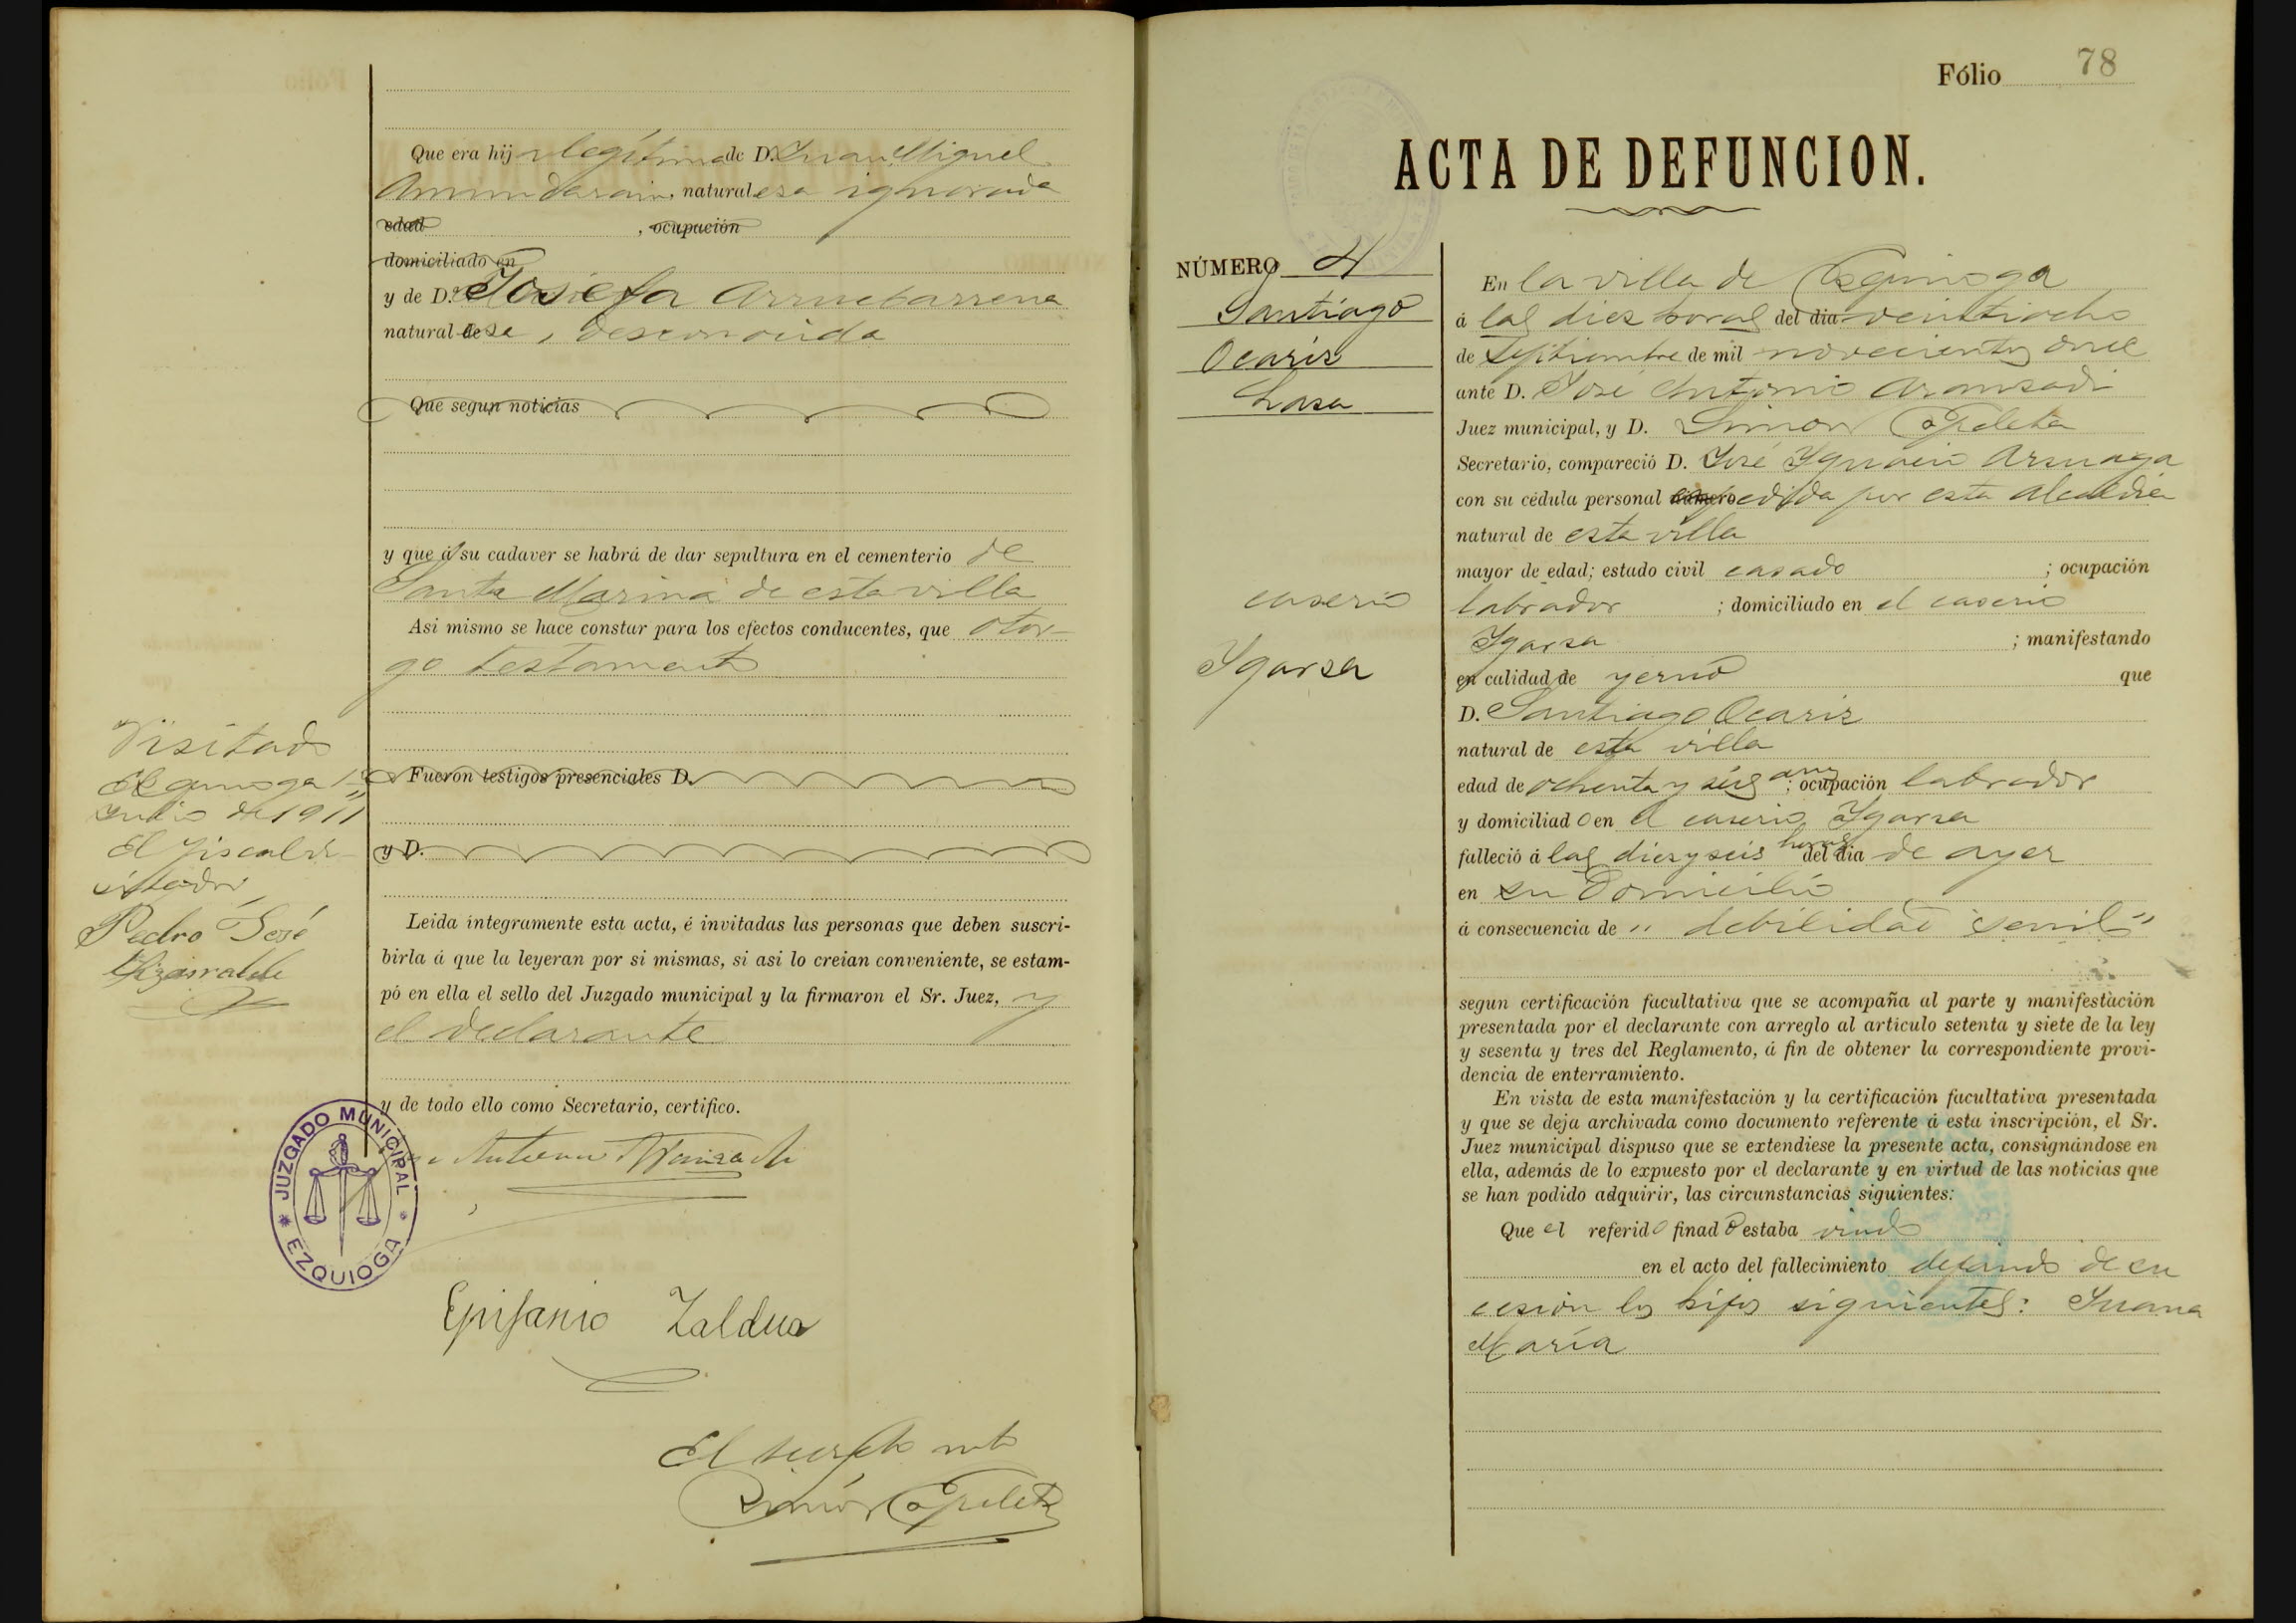 Que era hija legítima de D. Juan Miguel
Amundarain, natural esa ignorada
edad , ocupación
domiciliado en
y de D.ª Josefa Arruebarrena
natural de sa, desconocida
Que segun noticias
y que á su cadaver se habrá de dar sepultura en el cementerio de
Santa Marina de esta villa
Asi mismo se hace constar para los efectos conducentes, que otor-
go testamento
Fueron testigos presenciales D.
y D.
Leida íntegramente esta acta, é invitadas las personas que deben suscri-
birla á que la leyeran por si mismas, si asi lo creian conveniente, se estam-
pó en ella el sello del Juzgado municipal y la firmaron el Sr. Juez, y
el declarante
y de todo ello como Secretario, certifico.
Antonio Aranzadi
Epifanio Zaldua
El
Simón Apeleta
Visitado
Ezquioga
Julio de 1911
El Fiscal vi-
sitador,
Pedro José
JUZGADO MUNICIPAL
EZQUIOGA
Fólio 78
ACTA DE DEFUNCION.
NÚMERO 4
Santiago
Ocariz
Lasa
caserio
Ygarza
En la villa de Ezquioga
á las diez horas del dia veintiocho
de Septiembre de mil novecientos once
ante D. José Antonio Aranzadi
Juez municipal, y D. Simón Apeleta
Secretario, compareció D. José Ygnacio Arsuaga
con su cédula personal número expedida por esta Alcaldia
natural de esta villa
mayor de edad; estado civil casado ; ocupación
labrador ; domiciliado en el caserio
Ygarza ; manifestando
en calidad de yerno que
D. Santiago Ocariz
natural de esta villa
edad de ochenta y seis años; ocupación labrador
y domiciliado en el caserio Ygarza
falleció á las diez y seis horas del dia de ayer
en su domicilio
á consecuencia de "debilidad senil"
segun certificación facultativa que se acompaña al parte y manifestación
presentada por el declarante con arreglo al articulo setenta y siete de la ley
y sesenta y tres del Reglamento, á fin de obtener la correspondiente provi-
dencia de enterramiento.
En vista de esta manifestación y la certificación facultativa presentada
y que se deja archivada como documento referente á esta inscripción, el Sr.
Juez municipal dispuso que se extendiese la presente acta, consignándose en
ella, además de lo expuesto por el declarante y en virtud de las noticias que
se han podido adquirir, las circunstancias siguientes:
Que el referido finado estaba viudo
en el acto del fallecimiento dejando de su
cesión los hijos siguientes: Juana
María